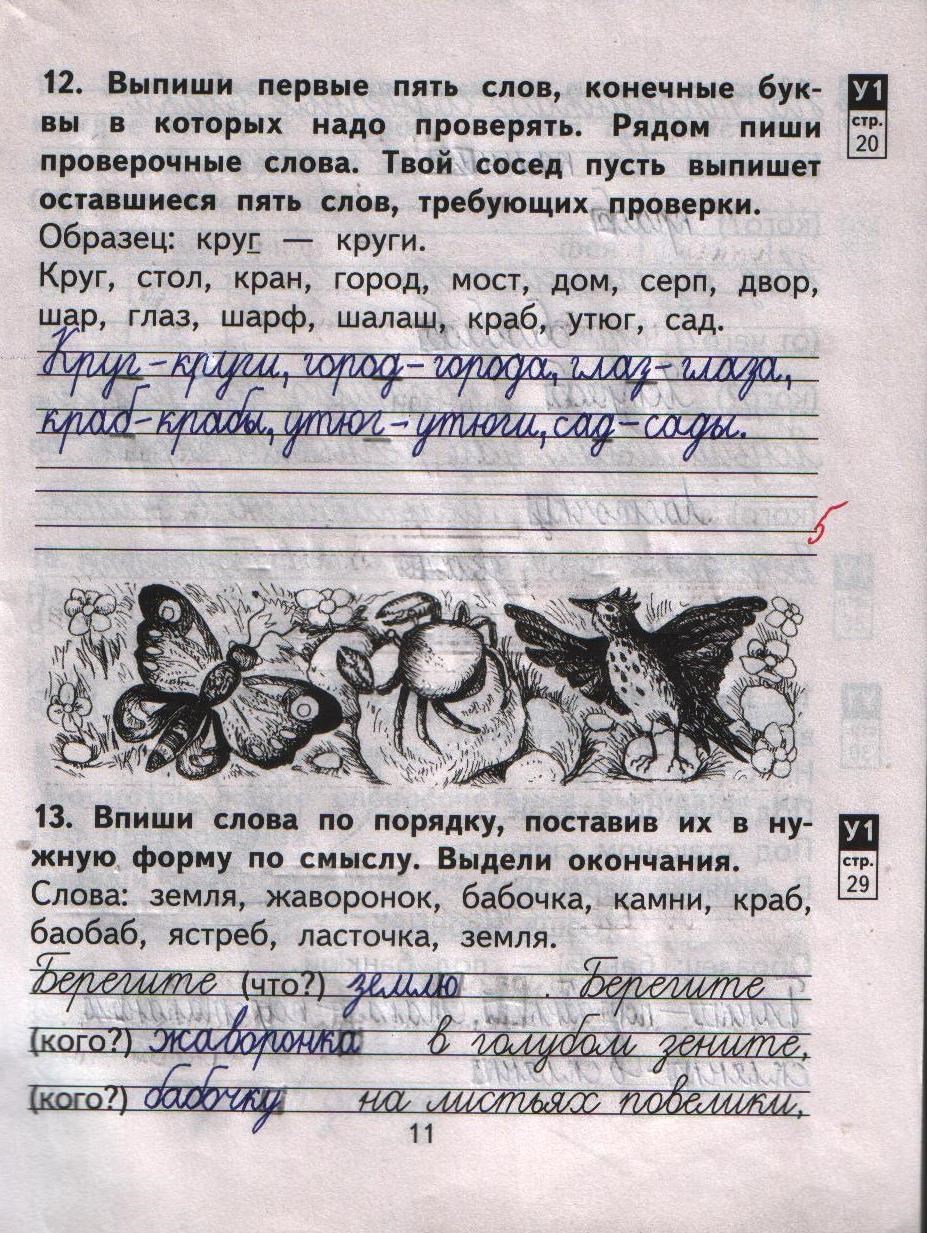 12. Выпиши первые пять слов, конечные бук-
вы в которых надо проверять. Рядом пиши
проверочные слова. Твой сосед пусть выпишет
оставшиеся пять слов, требующих проверки.
У1
стр.
20
Образец: круг — круги.
Круг, стол, кран, город, мост, дом, серп, двор,
шар, глаз, шарф, шалаш, краб, утюг, сад.
Круг – круги, город – города, глаз – глаза,
краб – крабы, утюг – утюги, сад – сады.
5
13. Впиши слова по порядку, поставив их в ну-
жную форму по смыслу. Выдели окончания.
У1
стр.
29
Слова: земля, жаворонок, бабочка, камни, краб,
баобаб, ястреб, ласточка, земля.
Берегите (что?) землю . Берегите
(кого?) жаворонка в голубом зените,
(кого?) бабочку на листьях повелики,
11